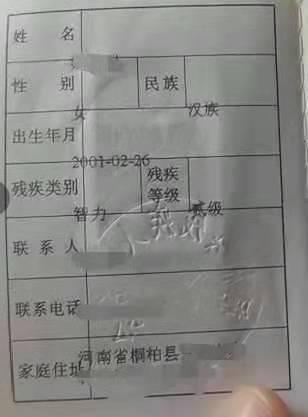 姓 名
性 别 民族
女 汉族
出生年月
2001-02-26
残疾类别 残疾等级
智力 贰级
联 系 人
联系电话
家庭住址
河南省桐柏县